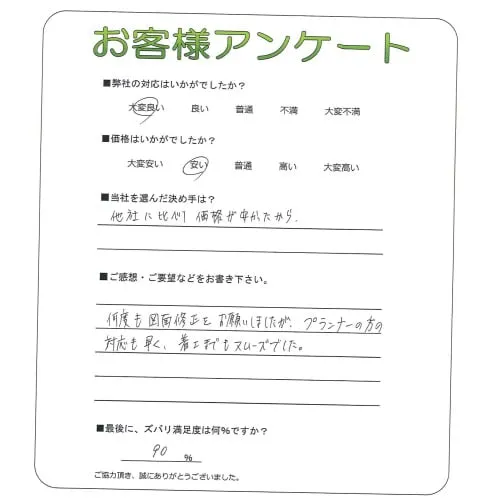 お客様アンケート
■弊社の対応はいかがでしたか？
大変良い 良い 普通 不満 大変不満
■価格はいかがでしたか？
大変安い 安い 普通 高い 大変高い
■当社を選んだ決め手は？
他社に比べ価格が安かたから.
■ご感想・ご要望などをお書き下さい。
何度も図面修正をお願いしましたが、プランナーの方の
対応も早く、着工までもスムーズでした。
■最後に、ズバリ満足度は何％ですか？
90 ％
ご協力頂き、誠にありがとうございました。